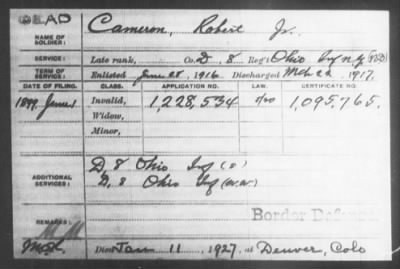 DEAD
NAME OF SOLDIER: Cameron, Robert Jr.
SERVICE: Late rank, Co. D, 8 Reg't Ohio Inf N.G.
TERM OF SERVICE: Enlisted June 28, 1916, Discharged Mch 22, 1917.
DATE OF FILING. CLASS. APPLICATION NO. LAW. CERTIFICATE NO.
1899 June 1 Invalid, 1,228,534 1,095,765.
Widow,
Minor,
ADDITIONAL SERVICES: D, 8 Ohio Inf
D, 8 Ohio Inf
Border Defense
REMARKS:
Died Jan 11, 1927, at Denver, Colo